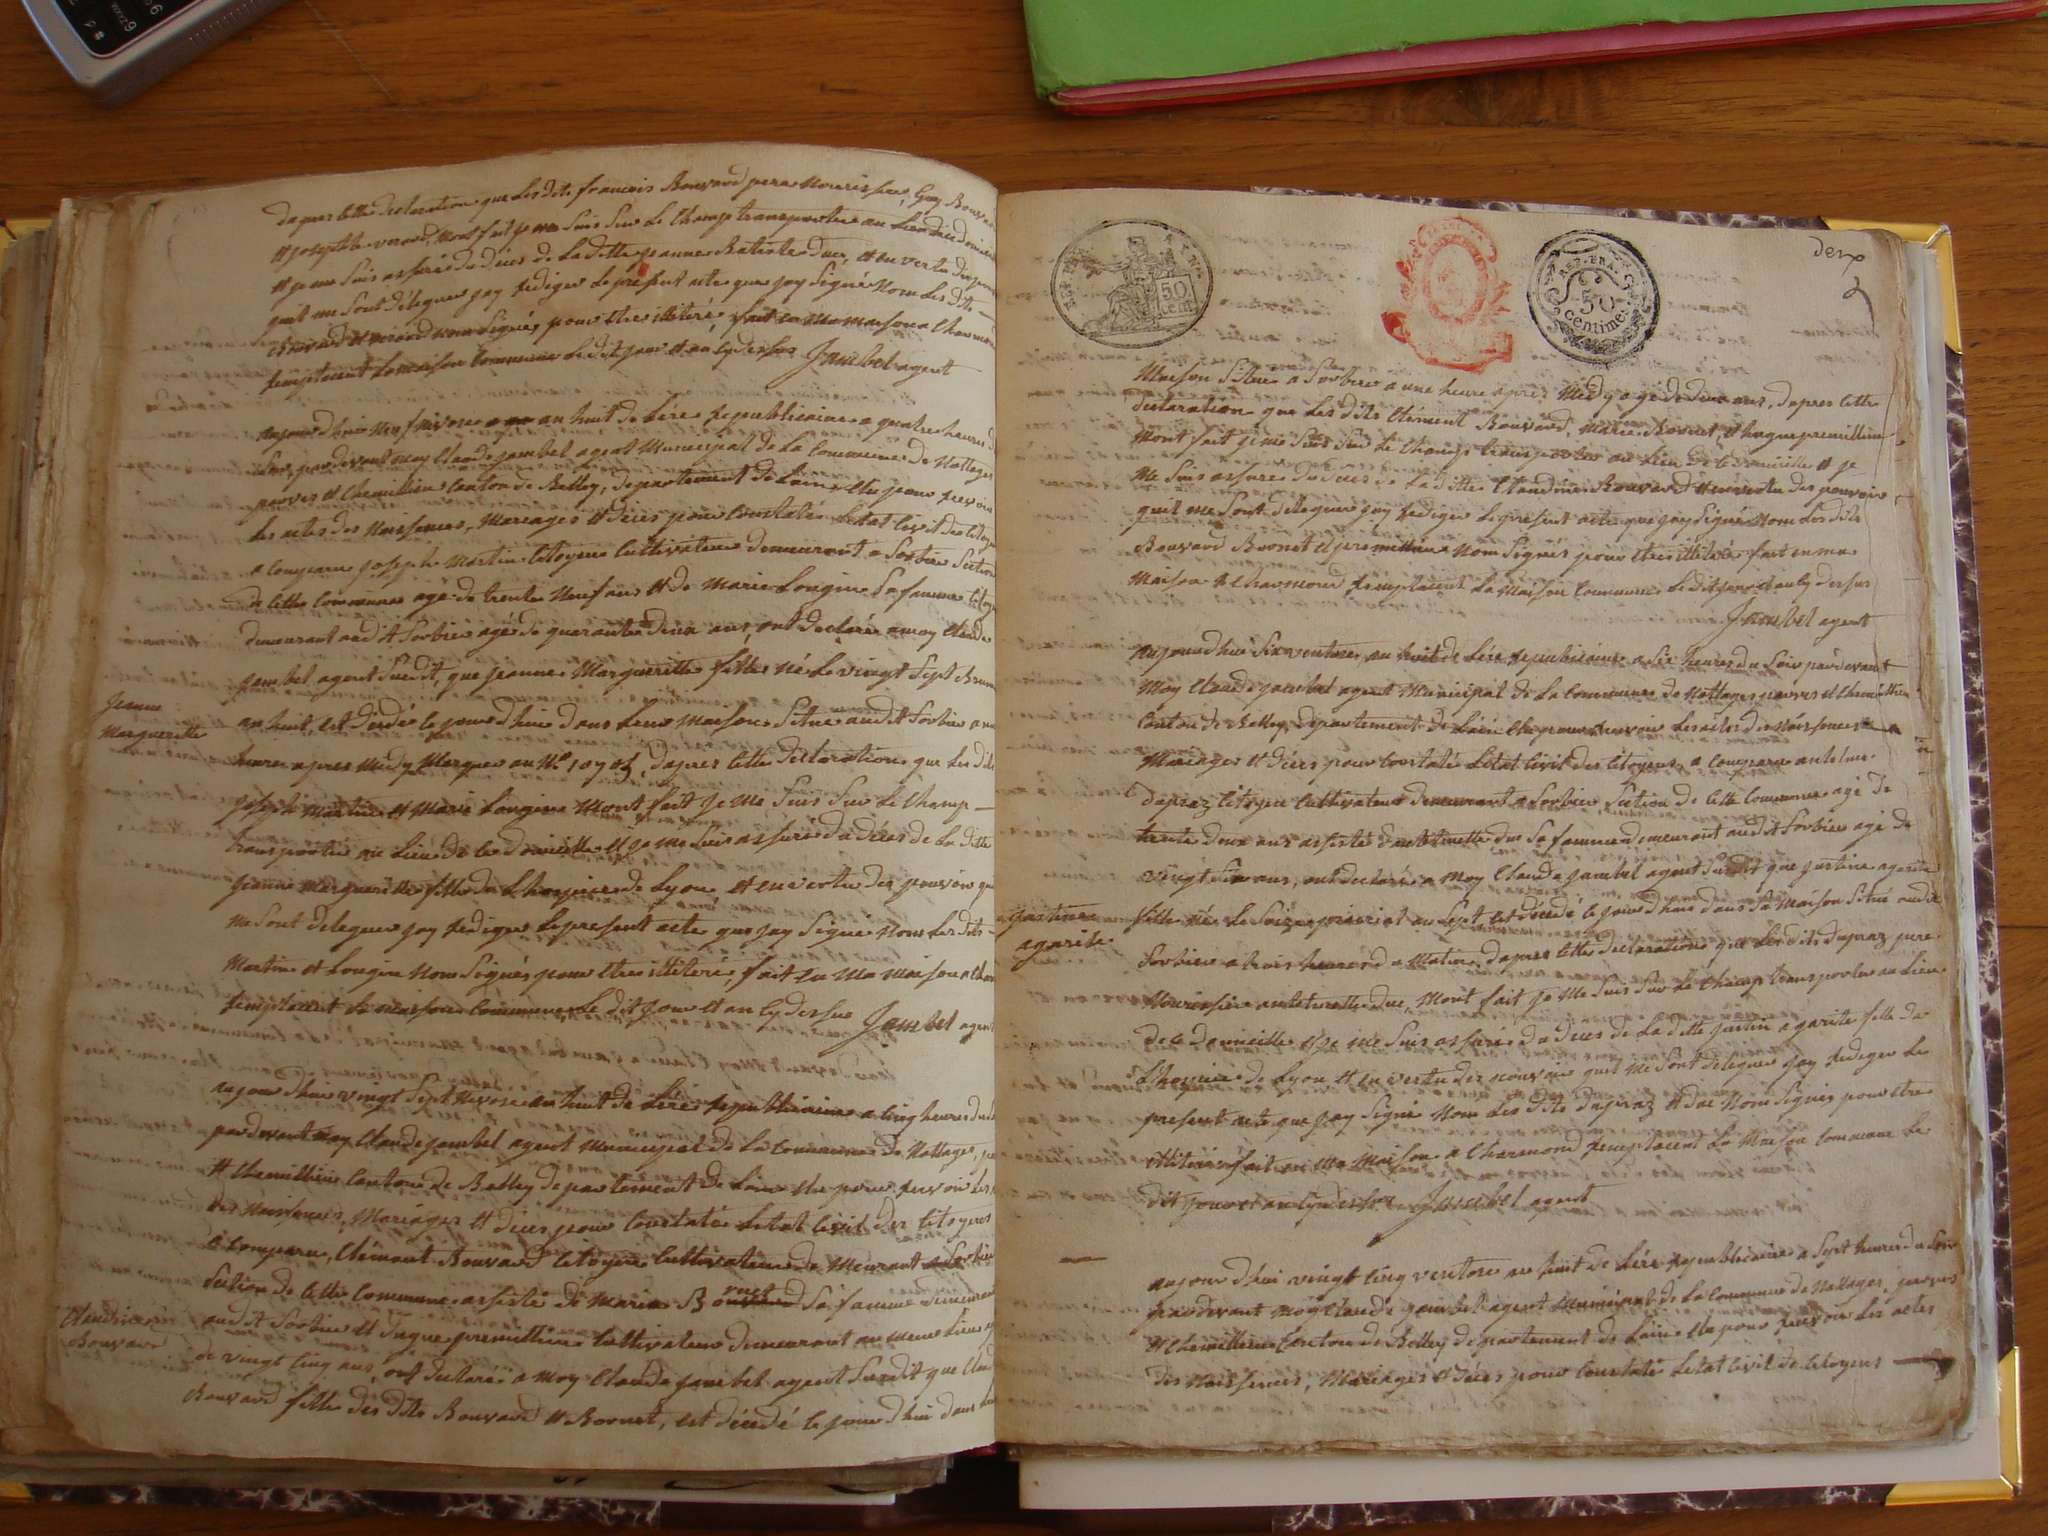 dapres cette declaration que lesdits francois Bouvard pere Nourissier, Guy Bouvard
et joseph vevard, mont fait je me suis sur le Champ transportée au lieu de ce domicile
et je me suis assurée du décès de la ditte jeanne Batiste duc, et en vertu des pouvoirs
quil me sont délegues jay rediger le présent acte que jay signé Nom les dits
Bouvard et nom signés pour être illiteré, fait en ma maison a Charmond
remplacent la maison Commune le dit jour et an cy dessus Jambel agent
aujourdhui Neuf nivose an huit de lère republicaine a quatre heures du
soir, par devant moy Claude jambel agent Municipal de la Commune de Nattages
parves et Chemillieu Canton de Belley, departement de Lain Elu pour recevoir
les actes des Naissances, Mariages et décès pour Constaté Letat Civil des Citoyens
a comparu joseph Martin Citoyen Cultivateur demeurant a Sorbier Section
de cette Commune agé de trente Neuf ans et de Marie Longin sa famme Citoy
demeurant audit Sorbier agé de quarante deux ans, ont declarée a moy Claude
jambel agent Susdit, que jeanne Margueritte fille né le vingt Sept Brum
Jeanne
Marguerite
an huit, est décédé le jour dhui dans leur Maison Sitné audit Sorbier a une
heure apres Midy Marque au No 10705, dapres cette declaration que les dits
joseph martin et Marie Longin Mont fait je me suis sur le Champ
transportée au lieu de ce domicille et je me suis assurée du décès de la ditte
jeanne Margueritte fille de Lhospice de Lyon et en vertu des pouvoir qui
me Sont délegues jay rediger le present acte que jay Signé Nom les dits
Martin et Longin Nom Signés pour être illiteré, fait en ma maison a Char
remplacent la maison Commune le dit jour et an cy dessus Jambel agent
aujourdhui vingt Sept Nivose an huit de Lère republicaine a Cinq heures du
par devant moy Claude jambel agent municipal de la Commune de Nattages, par
et Chemillieu Canton de Belley departement de Lain Elu pour recevoir les
des Naissances, Mariages et décès pour Constaté Letat Civil des Citoyens
a Comparu, Clément Bouvard Citoyen Cultivateur demeurant a Sorbier
Section de cette Commune assisté de Marie sa famme demeurant
Claudrine
Bouvard
audit Sorbier et hugue premillieu Cultivateur demeurant au meme lieu agé
de vingt Cinq ans, ont declaréé a moy Claude jambel agent Susdit que Claud
Bouvard fille des dits Bouvard et Bornet, est décédé le jour dhui dans leur
REP. FRA.
50
cent.
REP. FRA.
50
centime.
deux
2
Maison Sitnée a Sorbier a une heure apres Midy agé de deux ans, dapres cette
declaration que les dits Clément Bouvard, Marie Bornet, et hugue premillieu
Mont fait je me Suis Sur le Champ transportée au lieu de ce domicille et je
me Suis assure du décès de la ditte Claudrine Bouvard et en vertu des pouvoirs
quil me Sont delegues jay rediger le present acte que jay Signé Nom les dits
Bouvard Bornet et premillieu Nom Signés pour être illiteré fait en ma
Maison a Charmond remplacent la Maison Commune le dit jour et an cy dessus
Jambel agent
aujourdhui Six ventose an huit de Lère republicaine a Six heures du Soir par devant
Moy Claude jambel agent Municipal de la Commune de Nattages parves et Chemillieu
Canton de Belley, departement de Lain Elu pour recevoir les actes des Naissances
Mariages et décès pour Constaté Letat Civil des Citoyens a comparu antelme
dupraz Citoyen Cultivateur demeurant a Sorbier Section de cette Commune agé de
trente deux ans assisté duc sa famme demeurant audit Sorbier agé de
vingt Six ans, ont declarée a Moy Claude jambel agent Susdit que justine agarite
justine
agarite
fille née Le Seize prairial an Sept est décédé le jour dhui dans Sa Maison Sitné audit
Sorbier a trois heures du Matin, dapres cette declaration que les dits dupraz pere
Nourissier duc, Mont fait je me Suis Sur le Champ transportée au lieu
de ce domicille et je me Suis assurée du décès de la ditte justin agarite fille de
Lhospice de Lyon et en vertu des pouvoir quil me Sont delegues jay rediger le
present acte que jay Signé Nom les dits dupraz et duc Nom Signés pour être
illiteré fait en Ma Maison a Charmond remplacent la Maison Commune le
dit jour et an cy dessus Jambel agent
aujourdhui vingt Cinq ventose an huit de Lère republicaine a Sept heures du Soir
par devant moy Claude jambel agent municipal de la Commune de Nattages, parves
et Chemillieu Canton de Belley departement de Lain Elu pour recevoir les actes
des Naissances, Mariages et décès pour Constaté Letat Civil de Citoyens